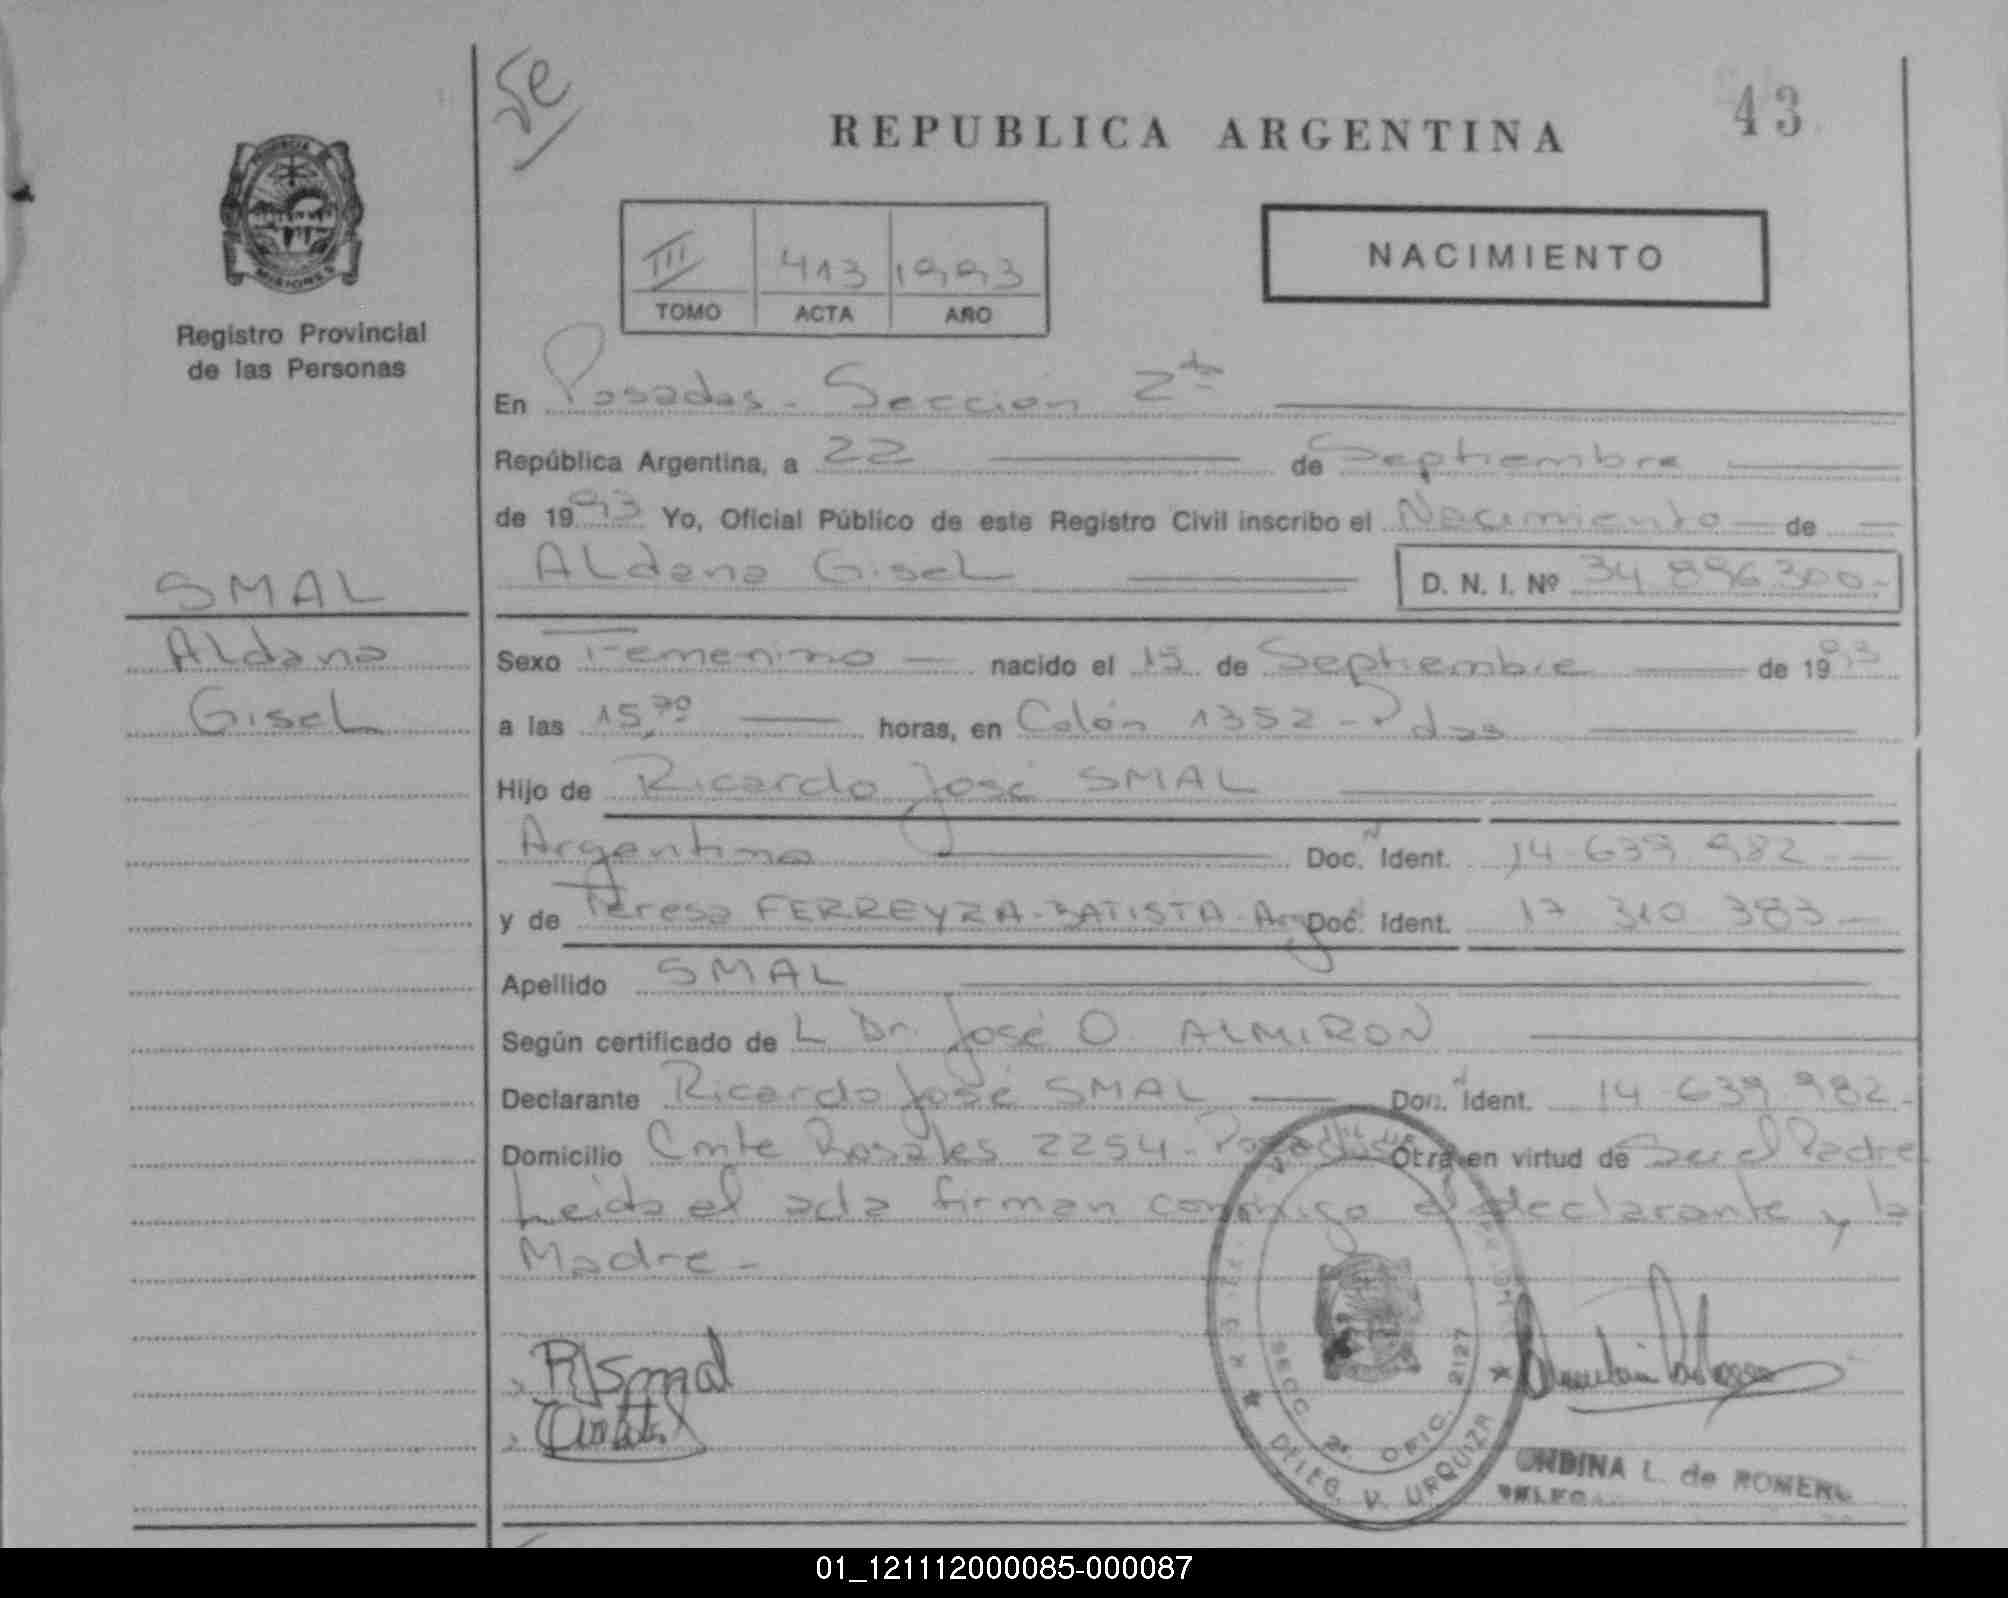 Se
43
REPUBLICA ARGENTINA
PROVINCIA DE
MISIONES
Registro Provincial
de las Personas
III 413 1993
TOMO ACTA AÑO
NACIMIENTO
En Posadas - Sección 2da
República Argentina, a 22 de Septiembre
de 1993 Yo, Oficial Público de este Registro Civil inscribo el Nacimiento de
Aldana Gisel D. N. I. Nº 34.896.300-
SMAL
Aldana
Gisel
Sexo Femenino nacido el 15 de Septiembre de 1993
a las 15, horas, en Colón 1352 - Pdas
Hijo de Ricardo José SMAL
Argentino Doc. Ident. 14.639.982 -
y de Teresa FERREYRA-BATISTA-Arg Doc. Ident. 17 310 383 -
Apellido SMAL
Según certificado de L Dr. José O. ALMIRON
Declarante Ricardo José SMAL Doc. Ident. 14.639.982-
Domicilio Cmte Rosales 2254 - Posadas Otra en virtud de Ser el Padre
Leida el acta firman conmigo el declarante y la
Madre -
RJSmal
SECC. 2ª. OFIC. 2127
DELEG. V. URQUIZA
ONDINA L. de ROMERO
01_121112000085-000087